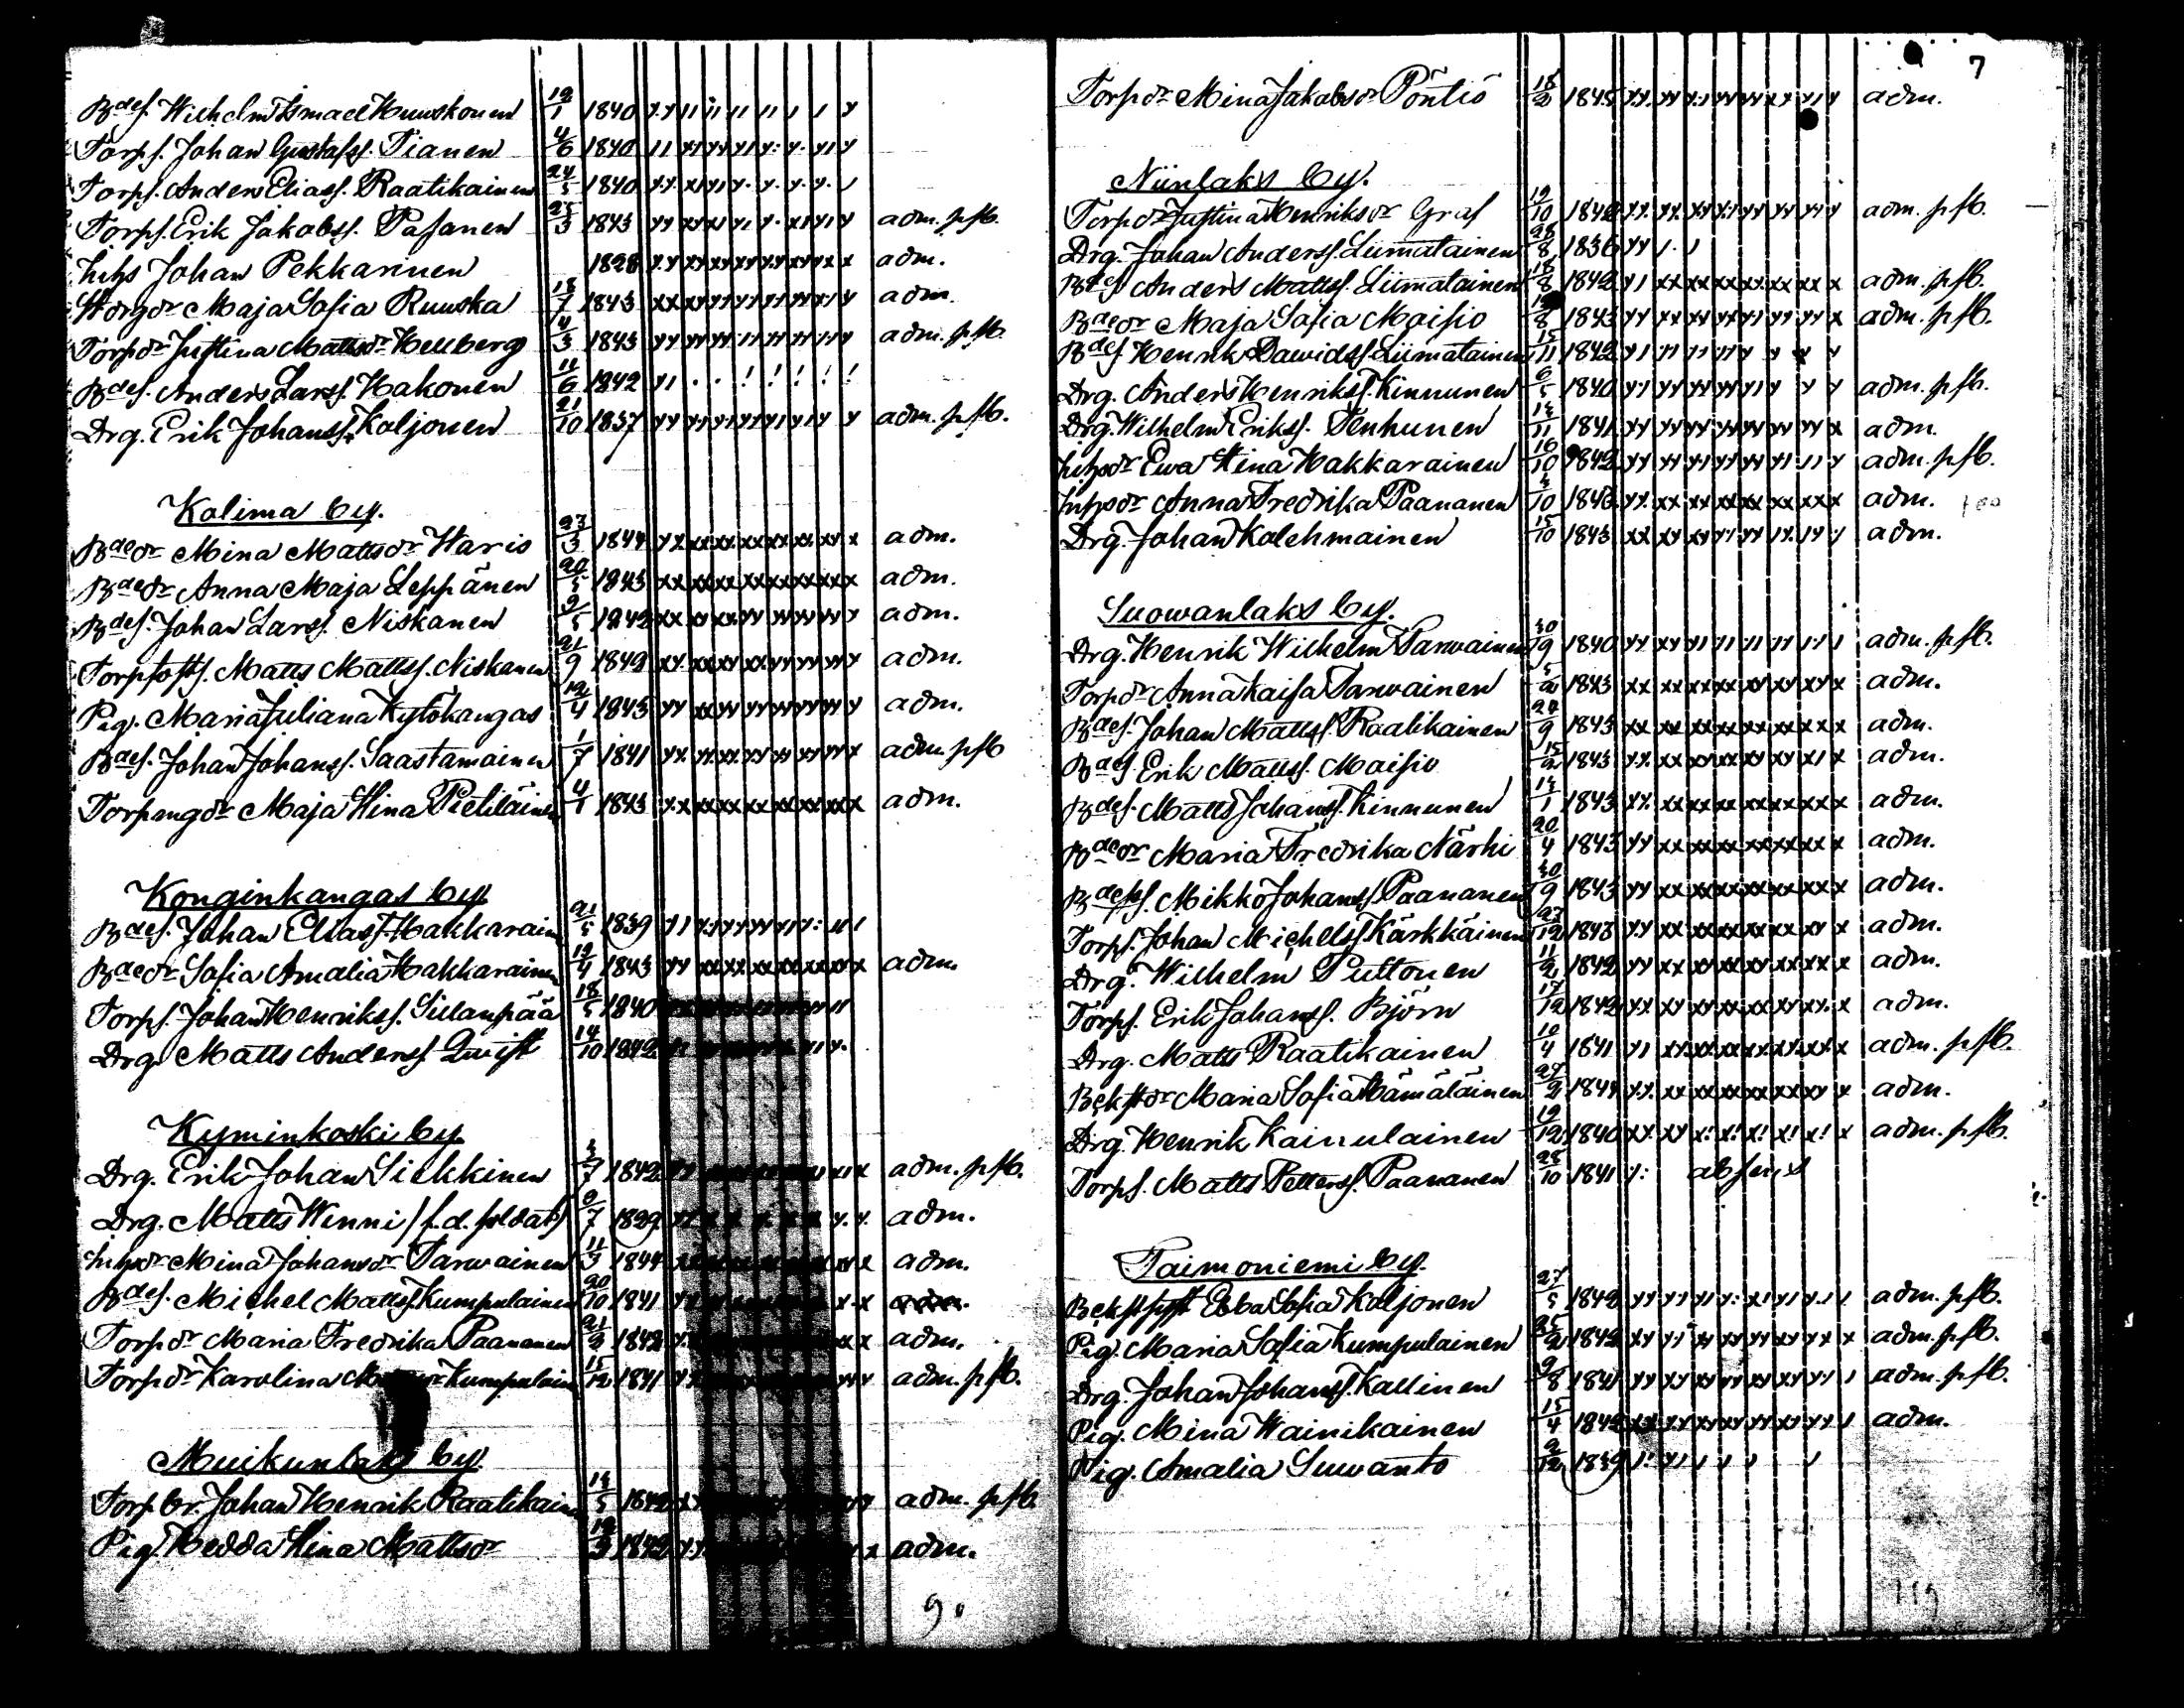 Bdes. Wilhelm Ismael Huuskonen 19/1 1840
Torps. Johan Gustafss. Tianen 4/6 1840
Torps. Anders Eliass. Raatikainen 24/5 1840
Torps. Erik Jakobss. Pasanen 25/3 1843 adm. pfb.
Inhs Johan Pekkarinen 1828 adm.
Maja Sofia Ruuska 18/7 1843 adm.
Torpdr Justina Mattsdr Hellberg 4/3 1843 adm. pfb.
Bdes. Anders Larss. Hakonen 11/6 1842
Drg. Erik Johanss. Koljonen 21/10 1837 adm. pfb.
Kolima by.
Bdedr Mina Mattsdr Haris 27/3 1844 adm.
Bdedr Anna Maja Leppänen 20/5 1843 adm.
Bdes. Johan Larss. Niskanen 9/5 1842 adm.
Matts Mattss. Niskanen 21/9 1842 adm.
Pig. Maria Juliana Kytökangas 12/4 1843 adm.
Bdes. Johan Johanss. Saastamoinen 1/7 1841 adm. pfb
Torpmgdr Maja Stina Pietiläinen 4/1 1843 adm.
Konginkangas by
Bdes. Johan Eliass. Hakkarain 21/5 1839
Bdedr Sofia Amalia Hakkarainen 19/4 1843 adm.
Torps. Johan Henrikss. Sillanpää 18/5 1840
Drg Matts Anderss Quist 14/10 1842
Kyminkoski by
Drg. Erik Johan Siekkinen 3/7 1842 adm. pfb.
Drg. Matts Winni /f.d. soldat/ 9/7 1829 adm.
Inhsdr Mina Johansdr Tarvainen 11/3 1844 adm.
Bdes. Michel Mattss. Kumpulainen 20/10 1841 adm.
Torpdr Maria Fredrika Paananen 21/9 1842 adm.
Torpdr Karolina Kumpulain 15/12 1841 adm. pfb.
Muikunlaks by
Torpbr. Johan Henrik Raatikain 14/5 1842 adm. pfb.
Pig. Hedda Stina Mattsdr 19/3 1842 adm.
9.
7
Torpdr Mina Jakobsdr Pöntiö 18/2 1845 adm.
Niinlaks by.
Torpdr Justina Henriksdr Graf 19/10 1842 adm. pfb.
Drg. Johan Anderss. Liimatainen 28/8 1836
Bdes Anders Mattss. Liimatainen 18/8 1842 adm. pfb.
Bdedr Maja Sofia Maisio 8 1843 adm. pfb.
Bdes Henrik Dawidss. Liimatainen 15/11 1842
Drg. Anders Henrikss. Kinnunen 6/5 1840 adm. pfb.
Drg. Wilhelm Erikss. Tenhunen 13/11 1841 adm.
Inhsdr Ewa Stina Hakkarainen 16/10 1842 adm. pfb.
Inhsdr Anna Fredrika Paananen 3/10 1843 adm.
Drg. Johan Kolehmainen 15/10 1843 adm.
Suowanlaks by.
Drg. Henrik Wilhelm Tarwainen 30/9 1840 adm. pfb.
Torpdr Anna Kaisa Tarwainen 5/2 1843 adm.
Bdes. Johan Mattss. Raatikainen 24/9 1843 adm.
Bdes Erik Mattss. Maisio 15/2 1843 adm.
Bdes. Matts Johanss. Kinnunen 13/1 1843 adm.
Bdedr Maria Fredrika Närhi 20/4 1843 adm.
Mikko Johanss Paananen 30/9 1843 adm.
Torps. Johan Michelss Kärkkäinen 27/12 1843 adm.
Drg. Wilhelm Puttonen 11/2 1842 adm.
Torps. Erik Johanss. Björn 17/12 1842 adm.
Drg. Matts Raatikainen 10/4 1841 adm. pfb.
Maria Sofia Hämäläinen 24/2 1844 adm.
Drg. Henrik Kainulainen 19/12 1840 adm. pfb.
Torps. Matts Petterss. Paananen 28/10 1841 absens
Taimoniemi by.
Ebba Sofia Koljonen 27/5 1842 adm. pfb.
Pig. Maria Sofia Kumpulainen 25/2 1842 adm. pfb.
Drg. Johan Johanss. Kallinen 9/8 1841 adm. pfb.
Pig. Mina Wainikainen 15/4 1842 adm.
Pig. Amalia Suwanto 9/12 1839